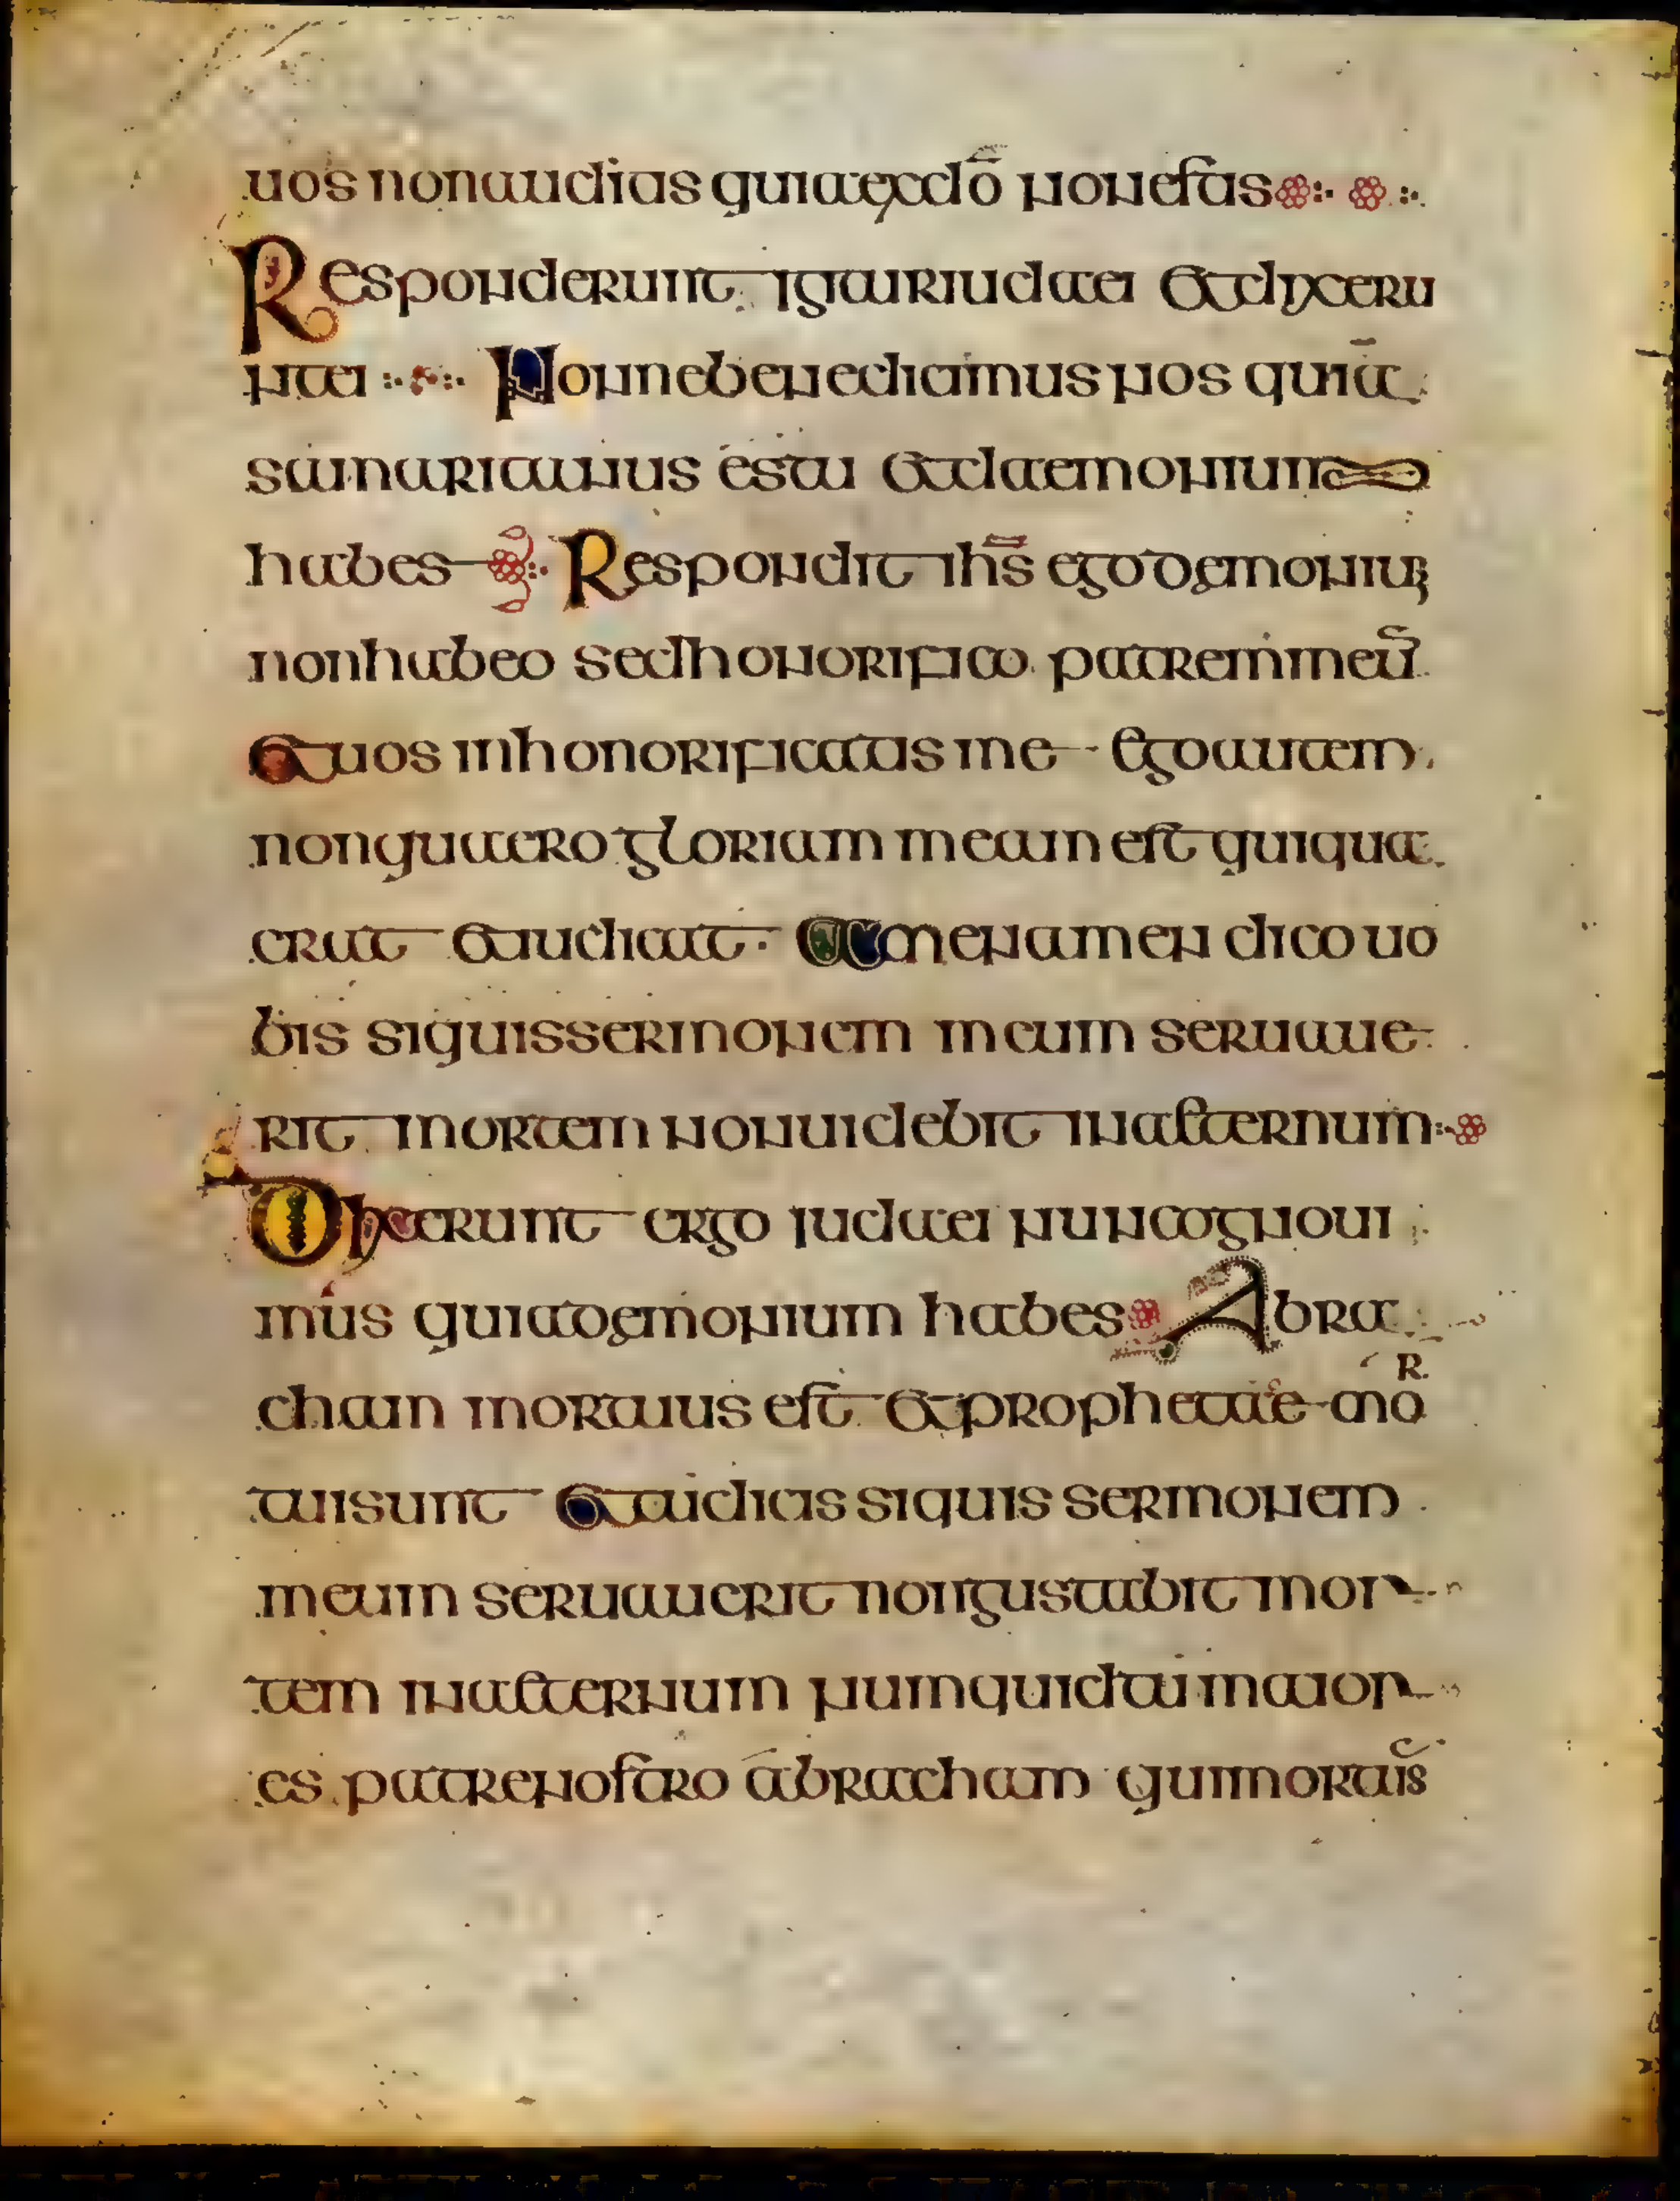 uos non auditis quia ex dō non estis
Responderunt igitur iudaei et dixeru
nt ei Nonne bene dicimus nos quia
samaritanus es tu et daemonium
habes Respondit ihs̄ ego demoniuꝫ
non habeo sed honorifico patrem meū
et uos inhonorificatis me Ego autem
non quaero gloriam meam est qui quae
erat et iudicat. Amen amen dico uo
bis si quis sermonem meum seruaue
rit mortem non uidebit in aeternum
Dixerunt ergo iudaei nunc cognoui
mus quia demonium habes Abra
cham mortuus est et prophetae mo
R.
tui sunt et tu dicis si quis sermonem
meum seruauerit non gustabit mor
tem in aeternum numquid tu maior
es patre nostro abracham qui mortuis